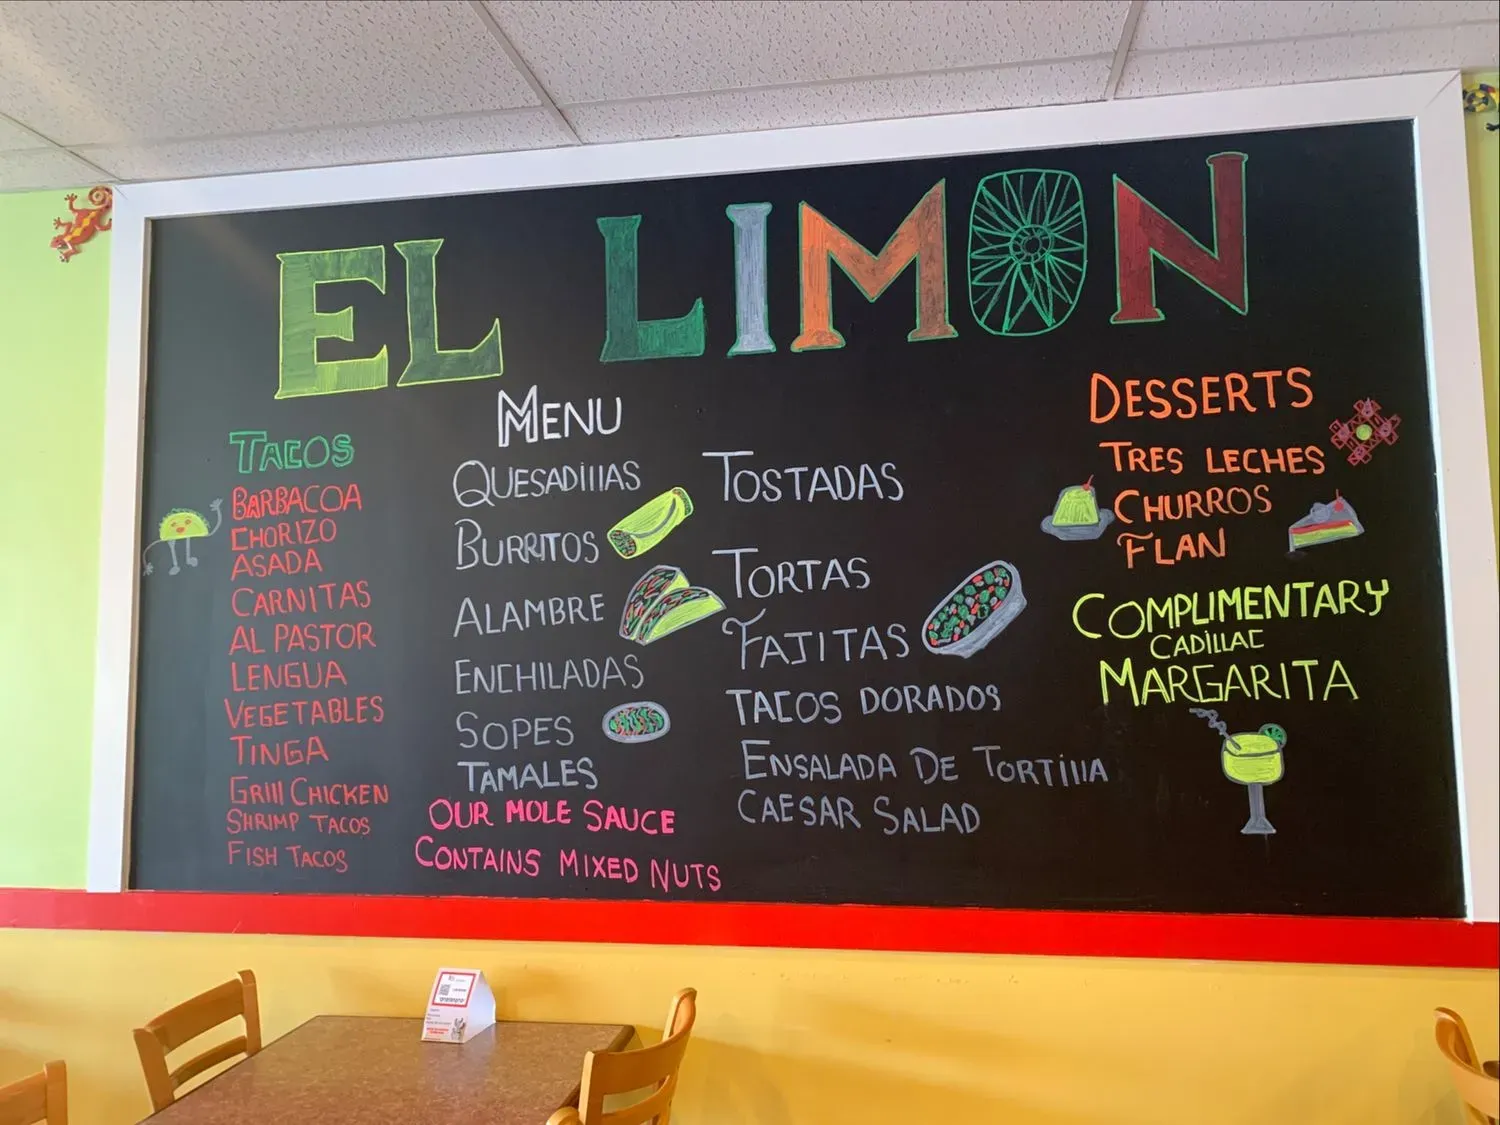 EL LIMON
TACOS
BARBACOA
CHORIZO
ASADA
CARNITAS
AL PASTOR
LENGUA
VEGETABLES
TINGA
GRIll CHICKEN
SHRIMP TACOS
FISH TACOS
MENU
QUESADIllAS
BURRITOS
ALAMBRE
ENCHILADAS
SOPES
TAMALES
OUR MOLE SAUCE
CONTAINS MIXED NUTS
TOSTADAS
TORTAS
FAJITAS
TACOS DORADOS
ENSALADA DE TORTIllA
CAESAR SALAD
DESSERTS
TRES LECHES
CHURROS
FLAN
COMPLIMENTARY
CADILLAC
MARGARITA